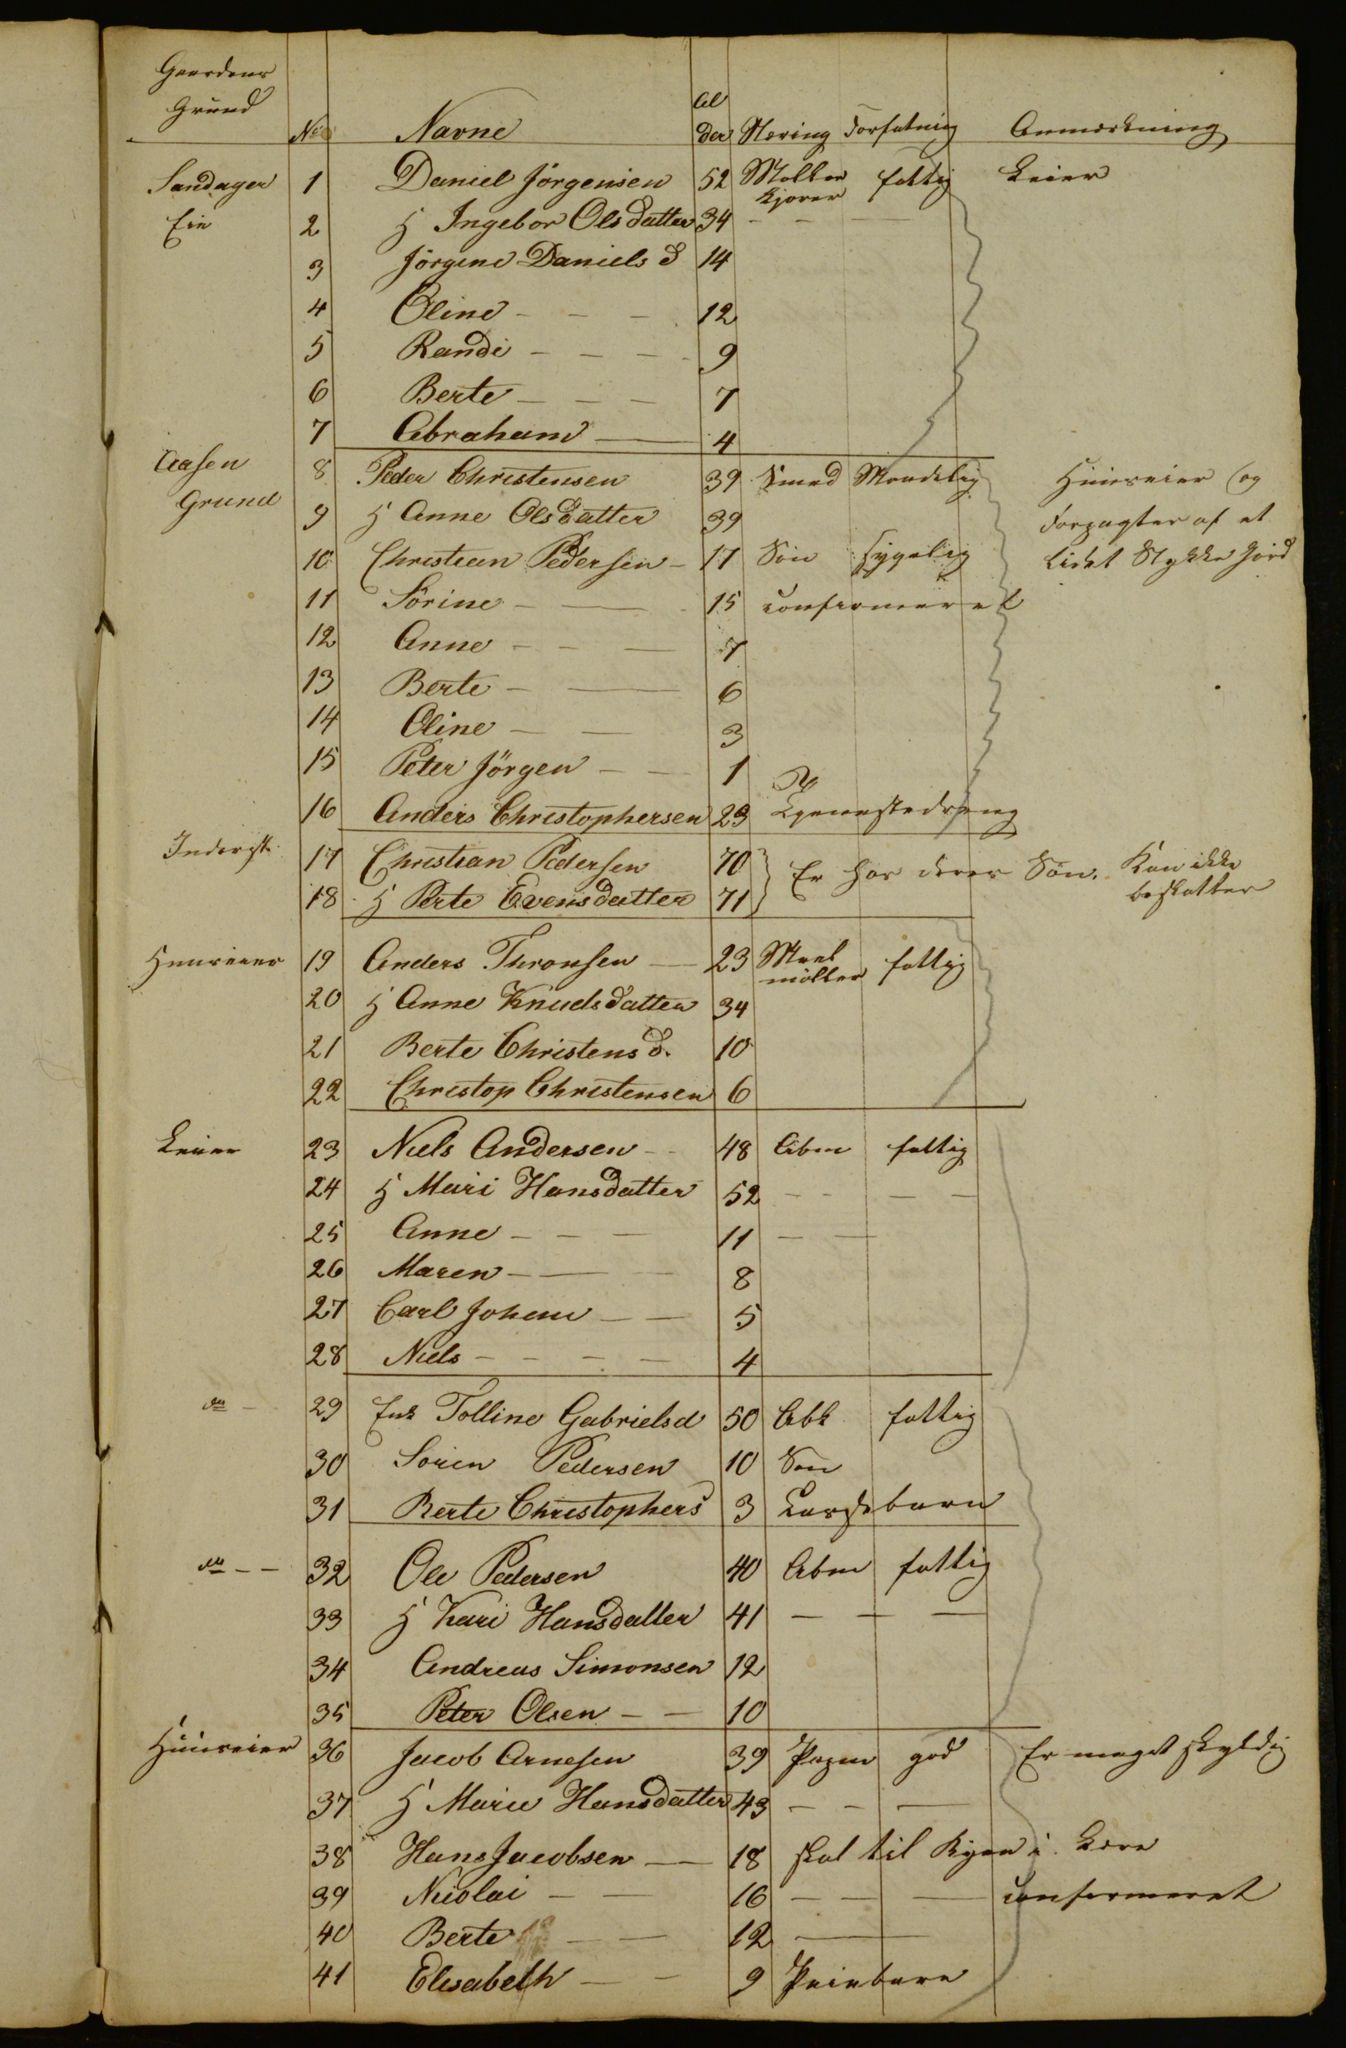 Gaardens
Grund No Navne Al
der Næring Forfatning Anmærkning
Sandager 1 Daniel Jörgensen 52 Møller fattig Leier
Eie kjører
2 H Ingebor Olsdatter 34 - - -
3 Jörgine Daniels d 14
4 Oline - - - 12
5 Randi - - - 9
6 Berte - - - 7
7 Abraham - 4
Aasen 8 Peder Christensen 39 Smed Maadelig Huuseier og
Grund 9 H Anne Olsdatter 39 Forpagter af et
10 Christian Pedersen - 17 Sön sygelig lidet Stykke Jord
11 Sörine - - 15 confirmeret
12 Anne - - - 7
13 Berte - - 6
14 Oline - - 3
15 Peter Jörgen - - 1
16 Anders Christophersen 23 Tjenestedreng
Inderst 17 Christian Pedersen 70 } Er hos deres Sön. Kan ikke
18 H Berte Evensdatter 71 beskattes
Huuseier 19 Anders Thronsen - 23 Meel fattig
möller
20 H Anne Knudsdatter 34
21 Berte Christens d. 10
22 Christop Christensen 6
Leier 23 Niels Andersen - - 48 Abm fattig
24 H Mari Hansdatter 52 - - - -
25 Anne - - - 11 - -
26 Maren - - - 8
27 Carl Johan - - 5
28 Niels - - - - 4
do - 29 Enk Tolline Gabrielsd 50 Abk fattig
30 Sören Pedersen 10 Sön
31 Berte Christophers 3 barn
do - - 32 Ole Pedersen 40 Abm fattig
33 H Kari Hansdatter 41 - - -
34 Andreas Simonsen 12
35 Peter Olsen - - 10
Huuseier 36 Jacob Arnesen 39 god Er meget skyldig
37 H Marie Hansdatter 43 - - -
38 Hans Jacobsen - 18 skal til Byen i Lære
39 Nicolai - - 16 - - - confirmeret
40 Berte - - 12 -
41 Elisabeth - - 9